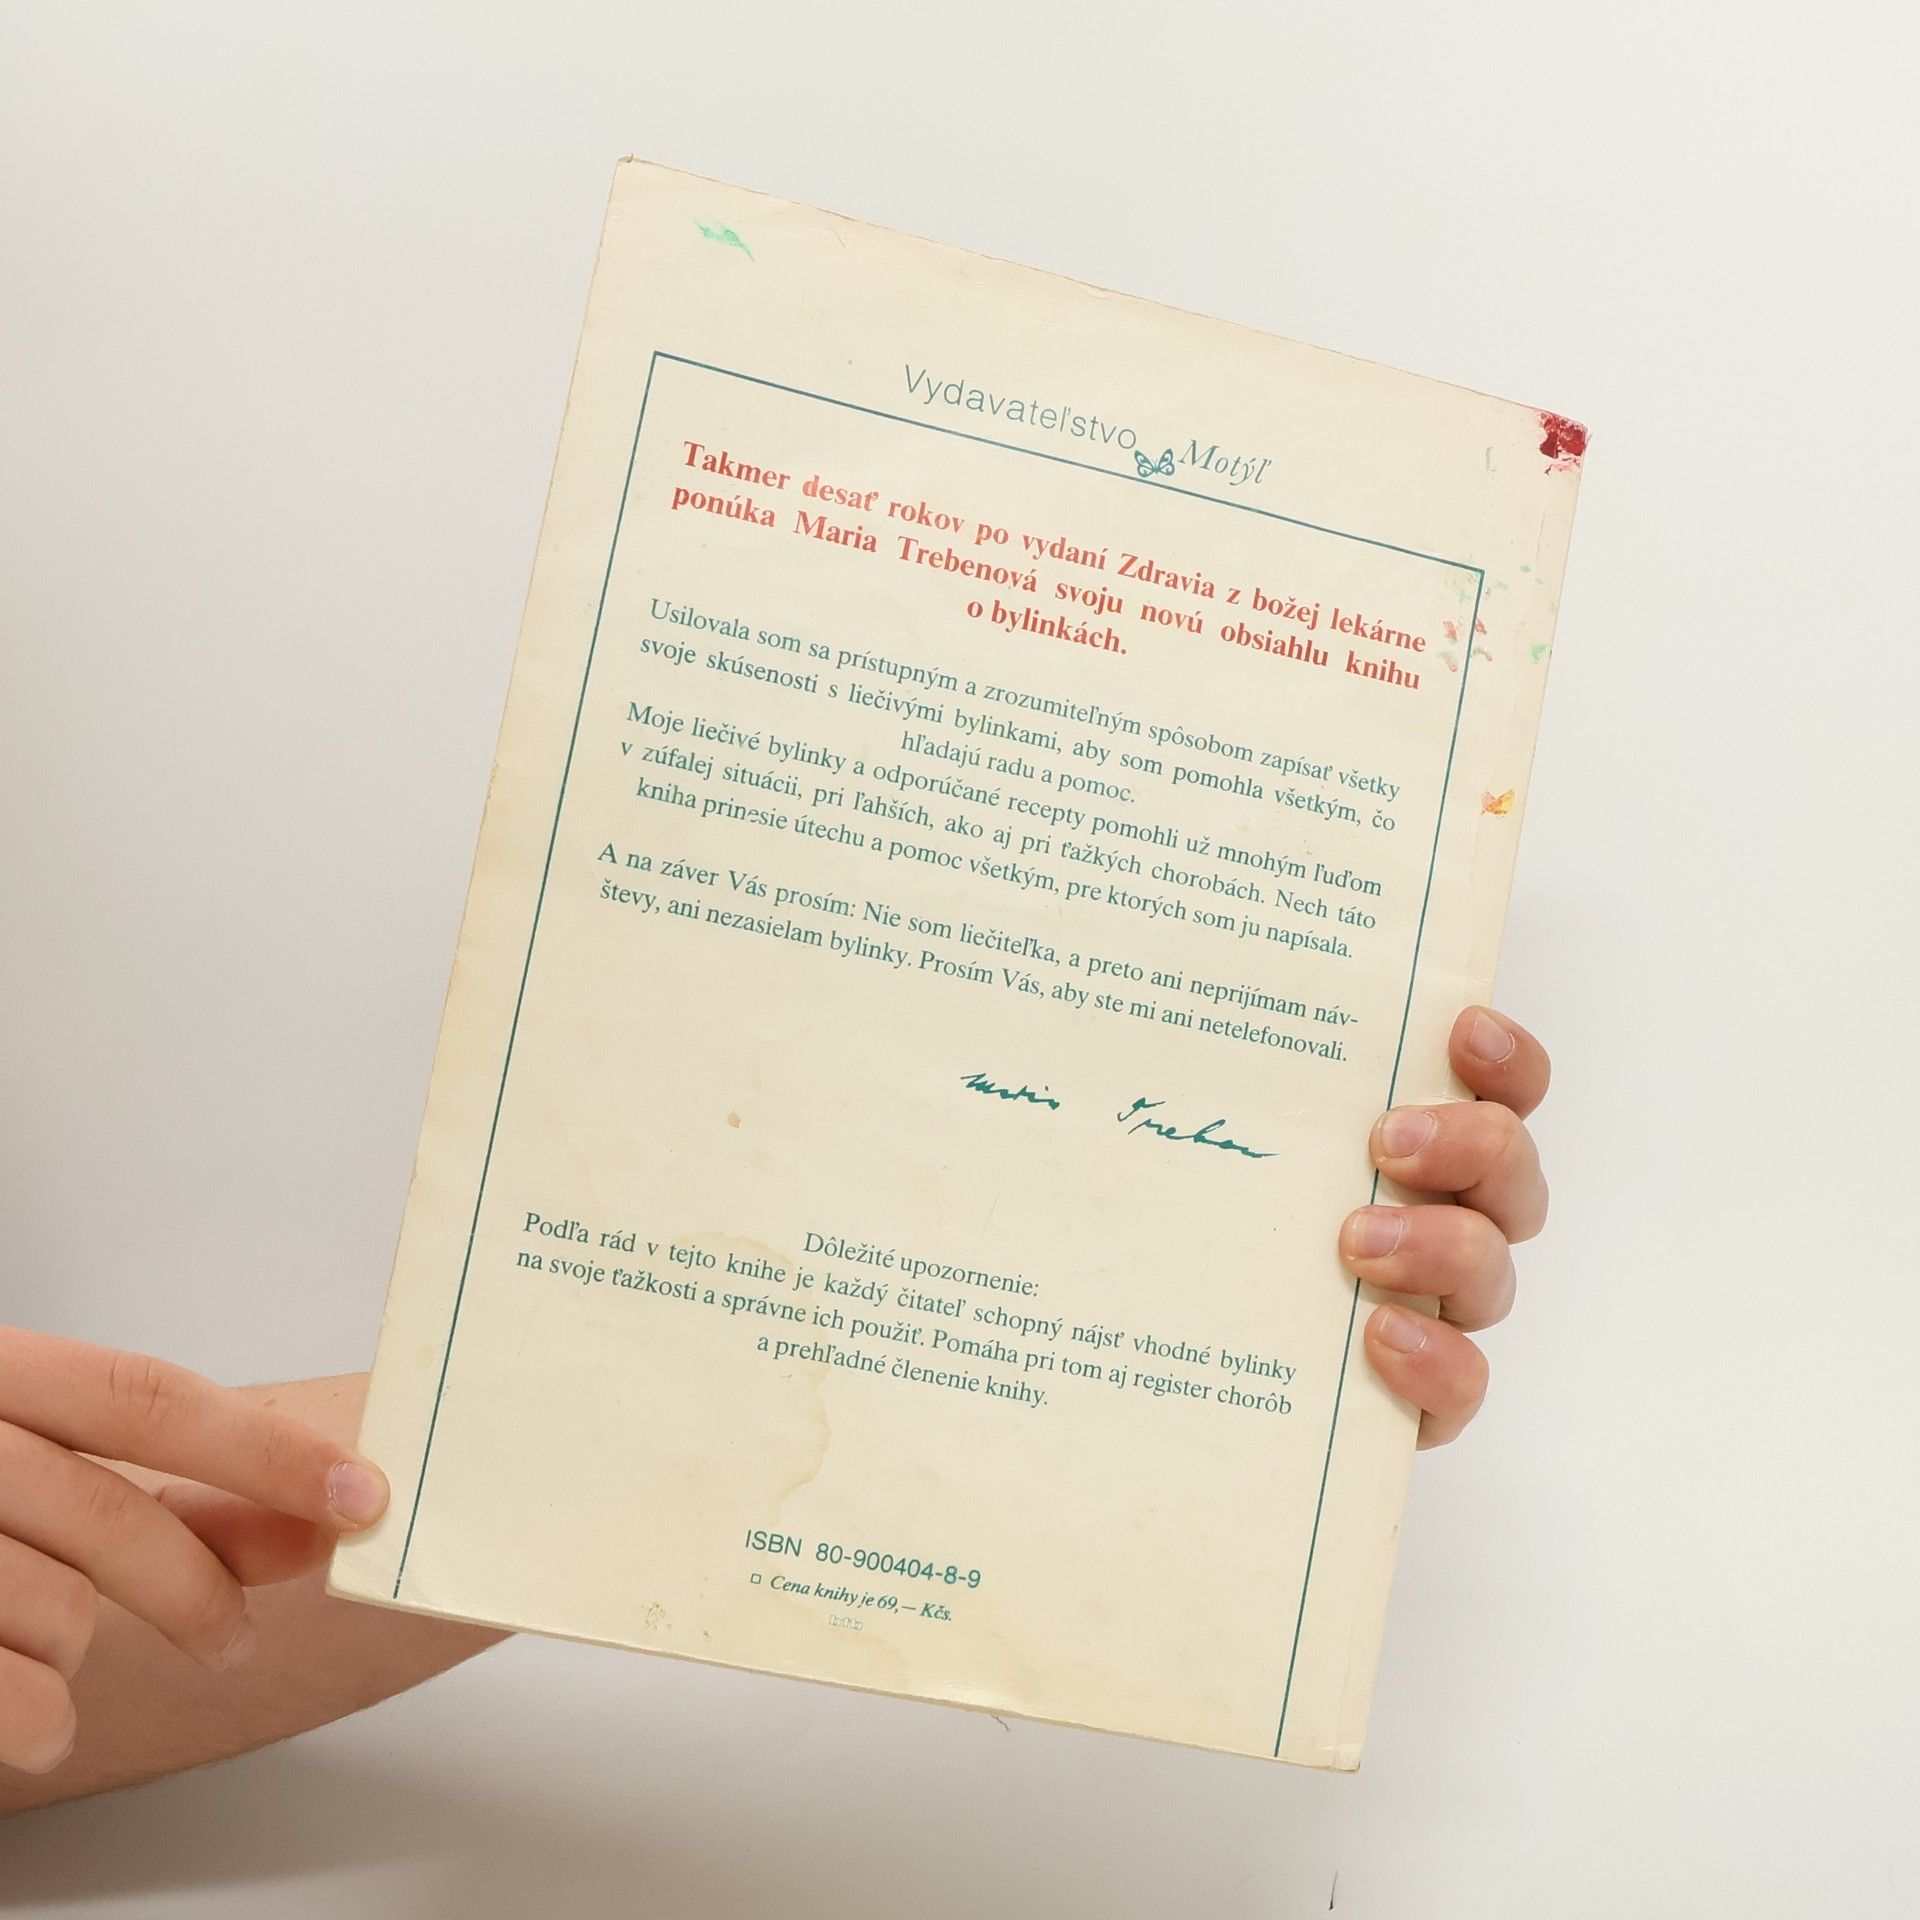 Vydavateľstvo Motýľ
Takmer desať rokov po vydaní Zdravia z božej lekárne
ponúka Maria Trebenová svoju novú obsiahlu knihu
o bylinkách.
Usilovala som sa prístupným a zrozumiteľným spôsobom zapísať všetky
svoje skúsenosti s liečivými bylinkami, aby som pomohla všetkým, čo
hľadajú radu a pomoc.
Moje liečivé bylinky a odporúčané recepty pomohli už mnohým ľuďom
v zúfalej situácii, pri ľahších, ako aj pri ťažkých chorobách. Nech táto
kniha prinesie útechu a pomoc všetkým, pre ktorých som ju napísala.
A na záver Vás prosím: Nie som liečiteľka, a preto ani neprijímam náv-
števy, ani nezasielam bylinky. Prosím Vás, aby ste mi ani netelefonovali.
Maria Treben
Dôležité upozornenie:
Podľa rád v tejto knihe je každý čitateľ schopný nájsť vhodné bylinky
na svoje ťažkosti a správne ich použiť. Pomáha pri tom aj register chorôb
a prehľadné členenie knihy.
ISBN 80-900404-8-9
Cena knihy je 69,– Kčs.